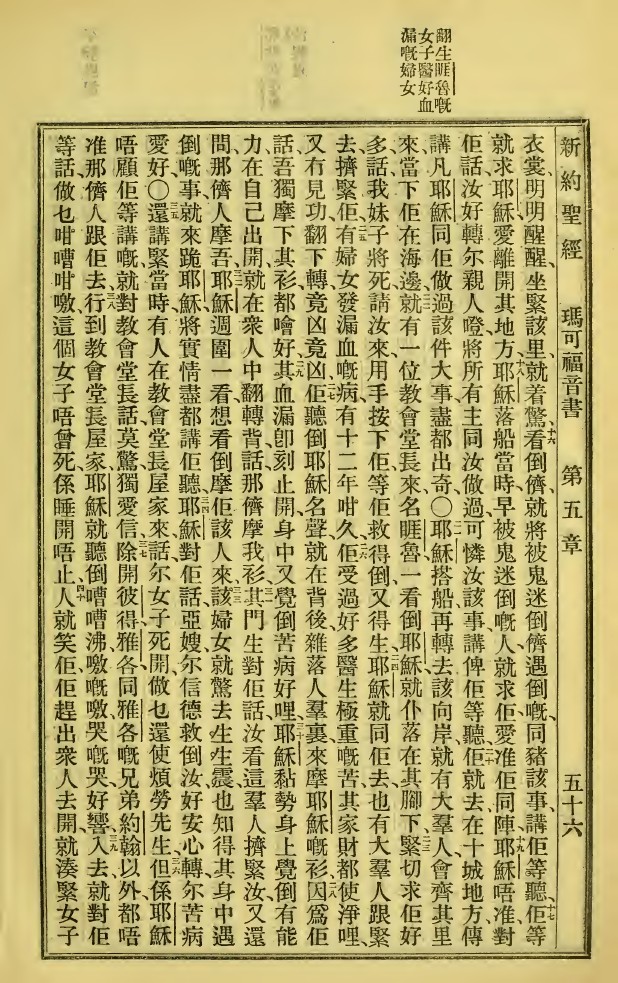 新約聖經　瑪可福音書　第五章　五十六
翻生睚魯嘅
女子醫好血
漏嘅婦女
衣裳、明明醒醒、坐緊該里、就着驚、十六看倒儕、就將被鬼迷倒儕遇倒嘅、同豬該事、講佢等聽、十七佢等
就求耶穌愛離開其地方、十八耶穌落船當時、早被鬼迷倒嘅人、就求佢愛准佢同陣、十九耶穌唔准、對
佢話、汝好轉尔親人噔、將所有主同汝做過、可憐汝該事、講俾佢等聽、二十佢就去、在十城地方、傳
講凡耶穌同佢做過該件大事、盡都出奇○二一耶穌搭船再轉去該向岸、就有大羣人會齊其里
來、當下佢在海邊、二二就有一位教會堂長來、名睚魯、一看倒耶穌、就仆落在其腳下、二三緊切求佢好
多、話我妹子將死、請汝來用手按下佢等佢救得倒、又得生、二四耶穌就同佢去、也有大羣人跟緊
去、擠緊佢、二五有婦女發漏血嘅病、有十二年咁久、二六佢受過好多醫生極重嘅苦、其家財都使淨哩、
又冇見功翻下轉、竟凶竟凶、二七佢聽倒耶穌名聲、就在背後雜落人羣裏、來摩耶穌嘅衫、二八因爲佢
話、吾獨摩下其衫、都噲好、二九其血漏卽刻止開、身中又覺倒苦病好哩、三十耶穌黏勢身上覺倒有能
力在自己出開、就在衆人中翻轉背話、那儕摩我衫、三一其門生對佢話、汝看這羣人擠緊汝、又還
問那儕人摩吾、三二耶穌週圍一看、想看倒摩佢該人來、三三該婦女就驚去生生震、也知得其身中遇
倒嘅事、就來跪耶穌、將實情盡都講佢聽、三四耶穌對佢話、亞嫂、尔信德救倒汝、好安心轉、尔苦病
愛好○三五還講緊當時、有人在教會堂長屋家來話、尔女子死開、做乜還使煩勞先生、三六但係耶穌
唔顧佢等講嘅、就對教會堂長話、莫驚、獨愛信、三七除開彼得、雅各、同雅各嘅兄弟約翰以外、都唔
准那儕人跟佢去、三八行到教會堂長屋家、耶穌就聽倒嘈嘈沸噭嘅噭、哭嘅哭、好響、三九入去就對佢
等話、做乜咁嘈咁噭、這個女子唔曾死、係睡開唔止、四十人就笑佢、佢趕出衆人去開、就湊緊女子